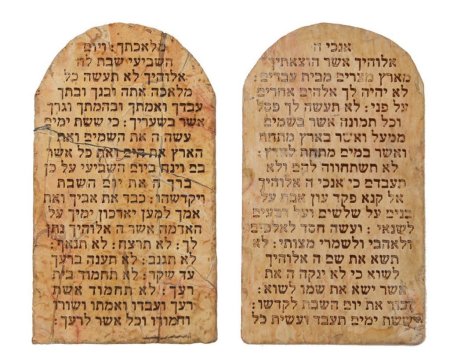 אנכי ה
אלוהיך אשר הוצאתיך
מארץ מצרים מבית עבדים:
לא יהיה לך אלהים אחרים
על פני: לא תעשה לך פסל
וכל תמונה אשר בשמים
ממעל ואשר בארץ מתחת
ואשר במים מתחת לארץ
לא תשתחווה להם ולא
תעבדם כי אנכי ה אלוהיך
אל קנא פקד עון אבת על
בנים על שלשים ועל רבעים
לשנאי: ועשה חסד לאלפים
ולאהבי ולשמרי מצותי: לא
תשא את שם ה אלוהיך
לשוא כי לא ינקה ה את
אשר ישא את שמו לשוא:
זכור את יום השבת לקדשו:
ששת ימים תעבד ועשית כל
מלאכתך: ויום
השביעי שבת לה
אלוהיך לא תעשה כל
מלאכה אתה ובנך ובתך
עבדך ואמתך ובהמתך וגרך
אשר בשעריך: כי ששת ימים
עשה ה את השמים ואת
הארץ את הים ואת כל אשר
בם וינח ביום השביעי על כן
ברך ה את יום השבת
ויקדשהו: כבד את אביך ואת
אמך למען יארכון ימיך על
האדמה אשר ה אלוהיך נתן
לך: לא תרצח: לא תנאף:
לא תגנב: לא תענה ברעך
עד שקר: לא תחמוד בית
רעך: לא תחמוד אשת
רעך ועבדו ואמתו ושורו
וחמורו וכל אשר לרעך: